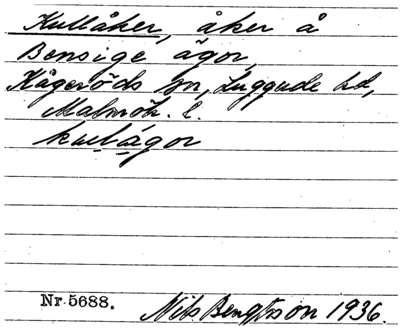 Kullåker, åker å
Bensige ägor
Kågeröds sn, Luggude hd,
Malmöh. l.
kullågor
Nr 5688. Nils Bengtsson 1936.